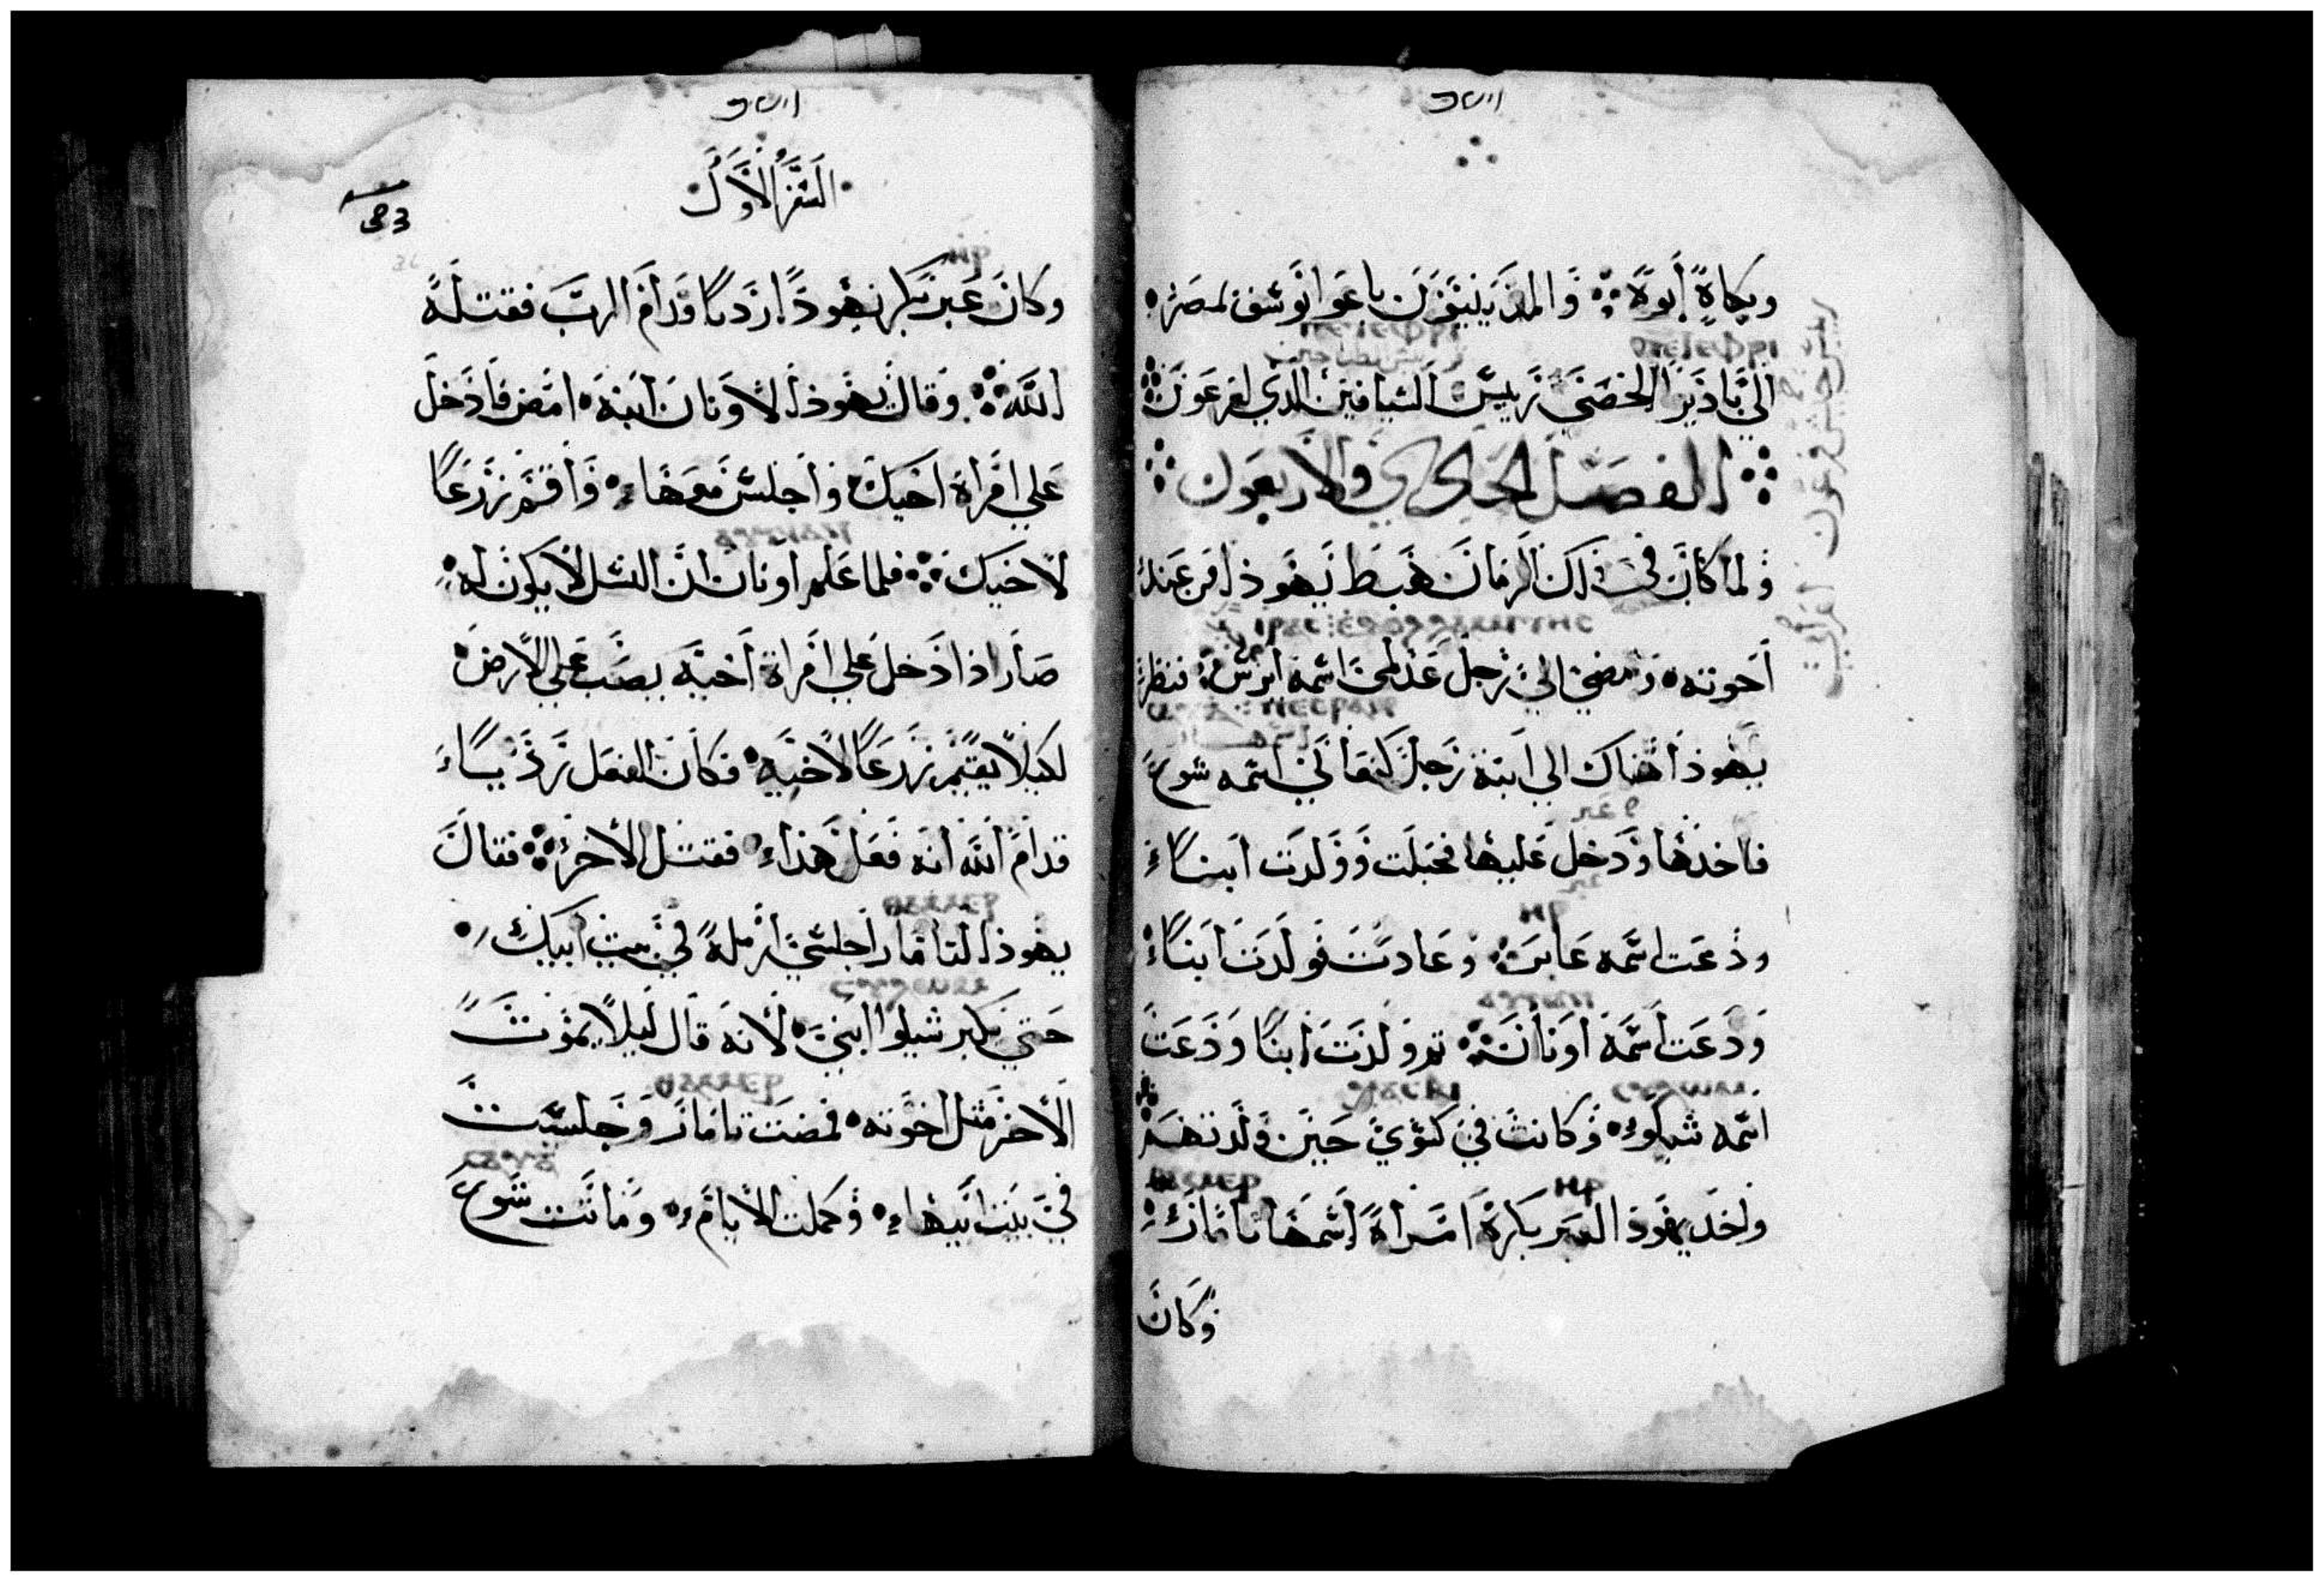 وبكاه ابوه والمدينيون باعوا يوسف لمصر
الي بادير الخصي رييس السيافين الدي لفرعون
الفصل الحادي والاربعون
ولما كان في ذلك الزمان هبط يهوذا من عند
اخوته ومضي الي رجل عدلمي اسمه ايرس فنظر
يهوذا هناك الي ابنة رجل كنعاني اسمه شوع
فاخذها ودخل عليها فحبلت وولدت ابناء
ودعت اسمه عاير وعادت فولدت ابناء
ودعت اسمه اونان تم ولدت ابنا ودعت
اسمه شيلو وكانت في كزي حين ولدتهم
واخد يهوذا لعير بكره امراة اسمها تامار
وكان
السفر الاول
وكان عير بكر يهوذا رديا قدام الرب فقتله
الله وقال يهوذا لاونان ابنه امض فادخل
علي امراة اخيك واجلس معها واقم زرعا
لاخيك فلما علم اونان ان النسل لا يكون له
صار اذا دخل علي امراة اخيه يصب علي الارض
لكيلا يقيم زرعا لاخيه فكان الفعل رذيا
قدام الله انه فعل هذا فقتل الاخر فقال
يهوذا لتامار اجلسي ارملة في بيت ابيك
حتي يكبر شيلوا ابني لانه قال ليلا يموت
الاخر مثل اخوته فمضت تامار وجلست
في بيت ابيها وكملت الايام وماتت شوع